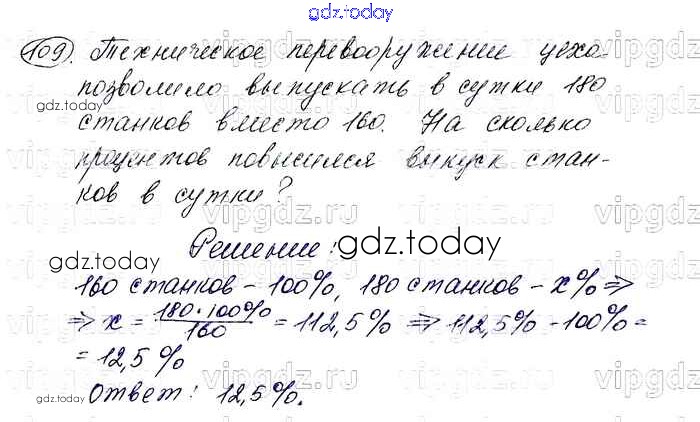 gdz.today
109. Техническое перевооружение цеха
позволило выпускать в сутки 180
gdz.today
станков вместо 160. На сколько
процентов повысился выпуск стан-
ков в сутки?
Решение:
gdz.today
gdz.today
160 станков - 100%, 180 станков - x% ⇒
⇒ x = 180·100% / 160 = 112,5% ⇒ 112,5% - 100% =
= 12,5%
gdz.today
Ответ: 12,5%.
vipgdz.ru